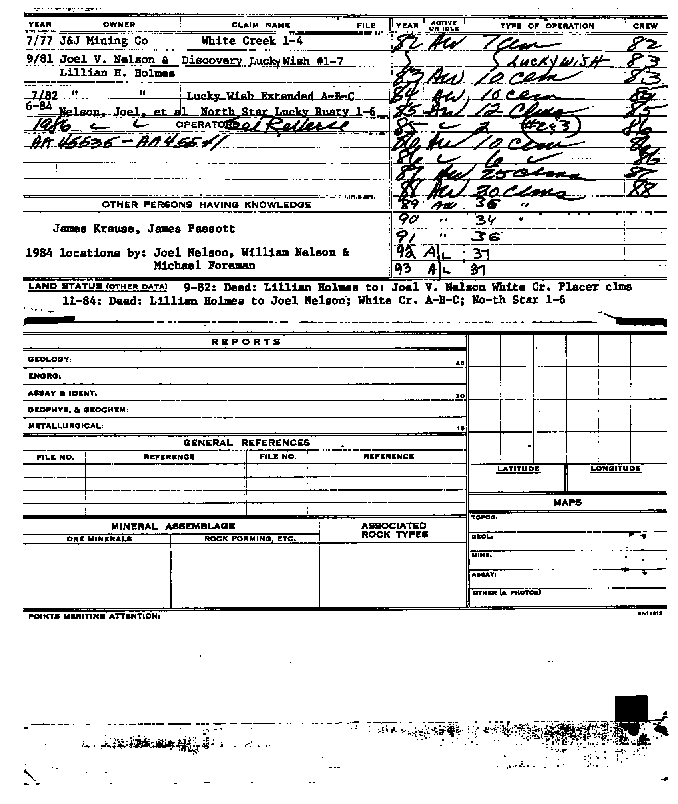 YEAR OWNER CLAIM NAME FILE YEAR ACTIVE OR IDLE TYPE OF OPERATION CREW
7/77 J&J Mining Co White Creek 1-4 82 AW 7 clm 82
9/81 Joel V. Nelson & Discovery LuckyWish #1-7 LUCKY WISH 83
Lillian H. Holmes 83 AW 10 clm 83
7/82 " " Lucky Wish Extended A-B-C 84 AW 10 clm 84
6-84 Nelson, Joel, et al North Star Lucky Rusty 1-6 85 AW 12 Clms 85
1986 OPERATOR 85 2 #2&3 86
AA 45535 - AA 455 86 AW 10 clm 86
86 6 86
87 AW 25 Clms 87
88 AW 30 Clms 88
OTHER PERSONS HAVING KNOWLEDGE 89 AW 36 "
James Krause, James Passott 90 " 34 "
91 " 36
1984 locations by: Joel Nelson, William Nelson & 92 A L 37
Michael Foreman 93 A L 37
LAND STATUS (OTHER DATA) 9-82: Deed: Lillian Holmes to: Joel V. Nelson White Cr. Placer clms
11-84: Deed: Lillian Holmes to Joel Nelson; White Cr. A-B-C; No-th Star 1-6
REPORTS
GEOLOGY:
ENGRG:
ASSAY & IDENT:
GEOPHYS. & GEOCHEM:
METALLURGICAL:
GENERAL REFERENCES
FILE NO. REFERENCE FILE NO. REFERENCE
LATITUDE LONGITUDE
MAPS
MINERAL ASSEMBLAGE ASSOCIATED ROCK TYPES
ORE MINERALS ROCK FORMING, ETC.
TOPOG:
GEOL:
MINE:
ASSAY:
OTHER (& PHOTOS)
POINTS MERITING ATTENTION: